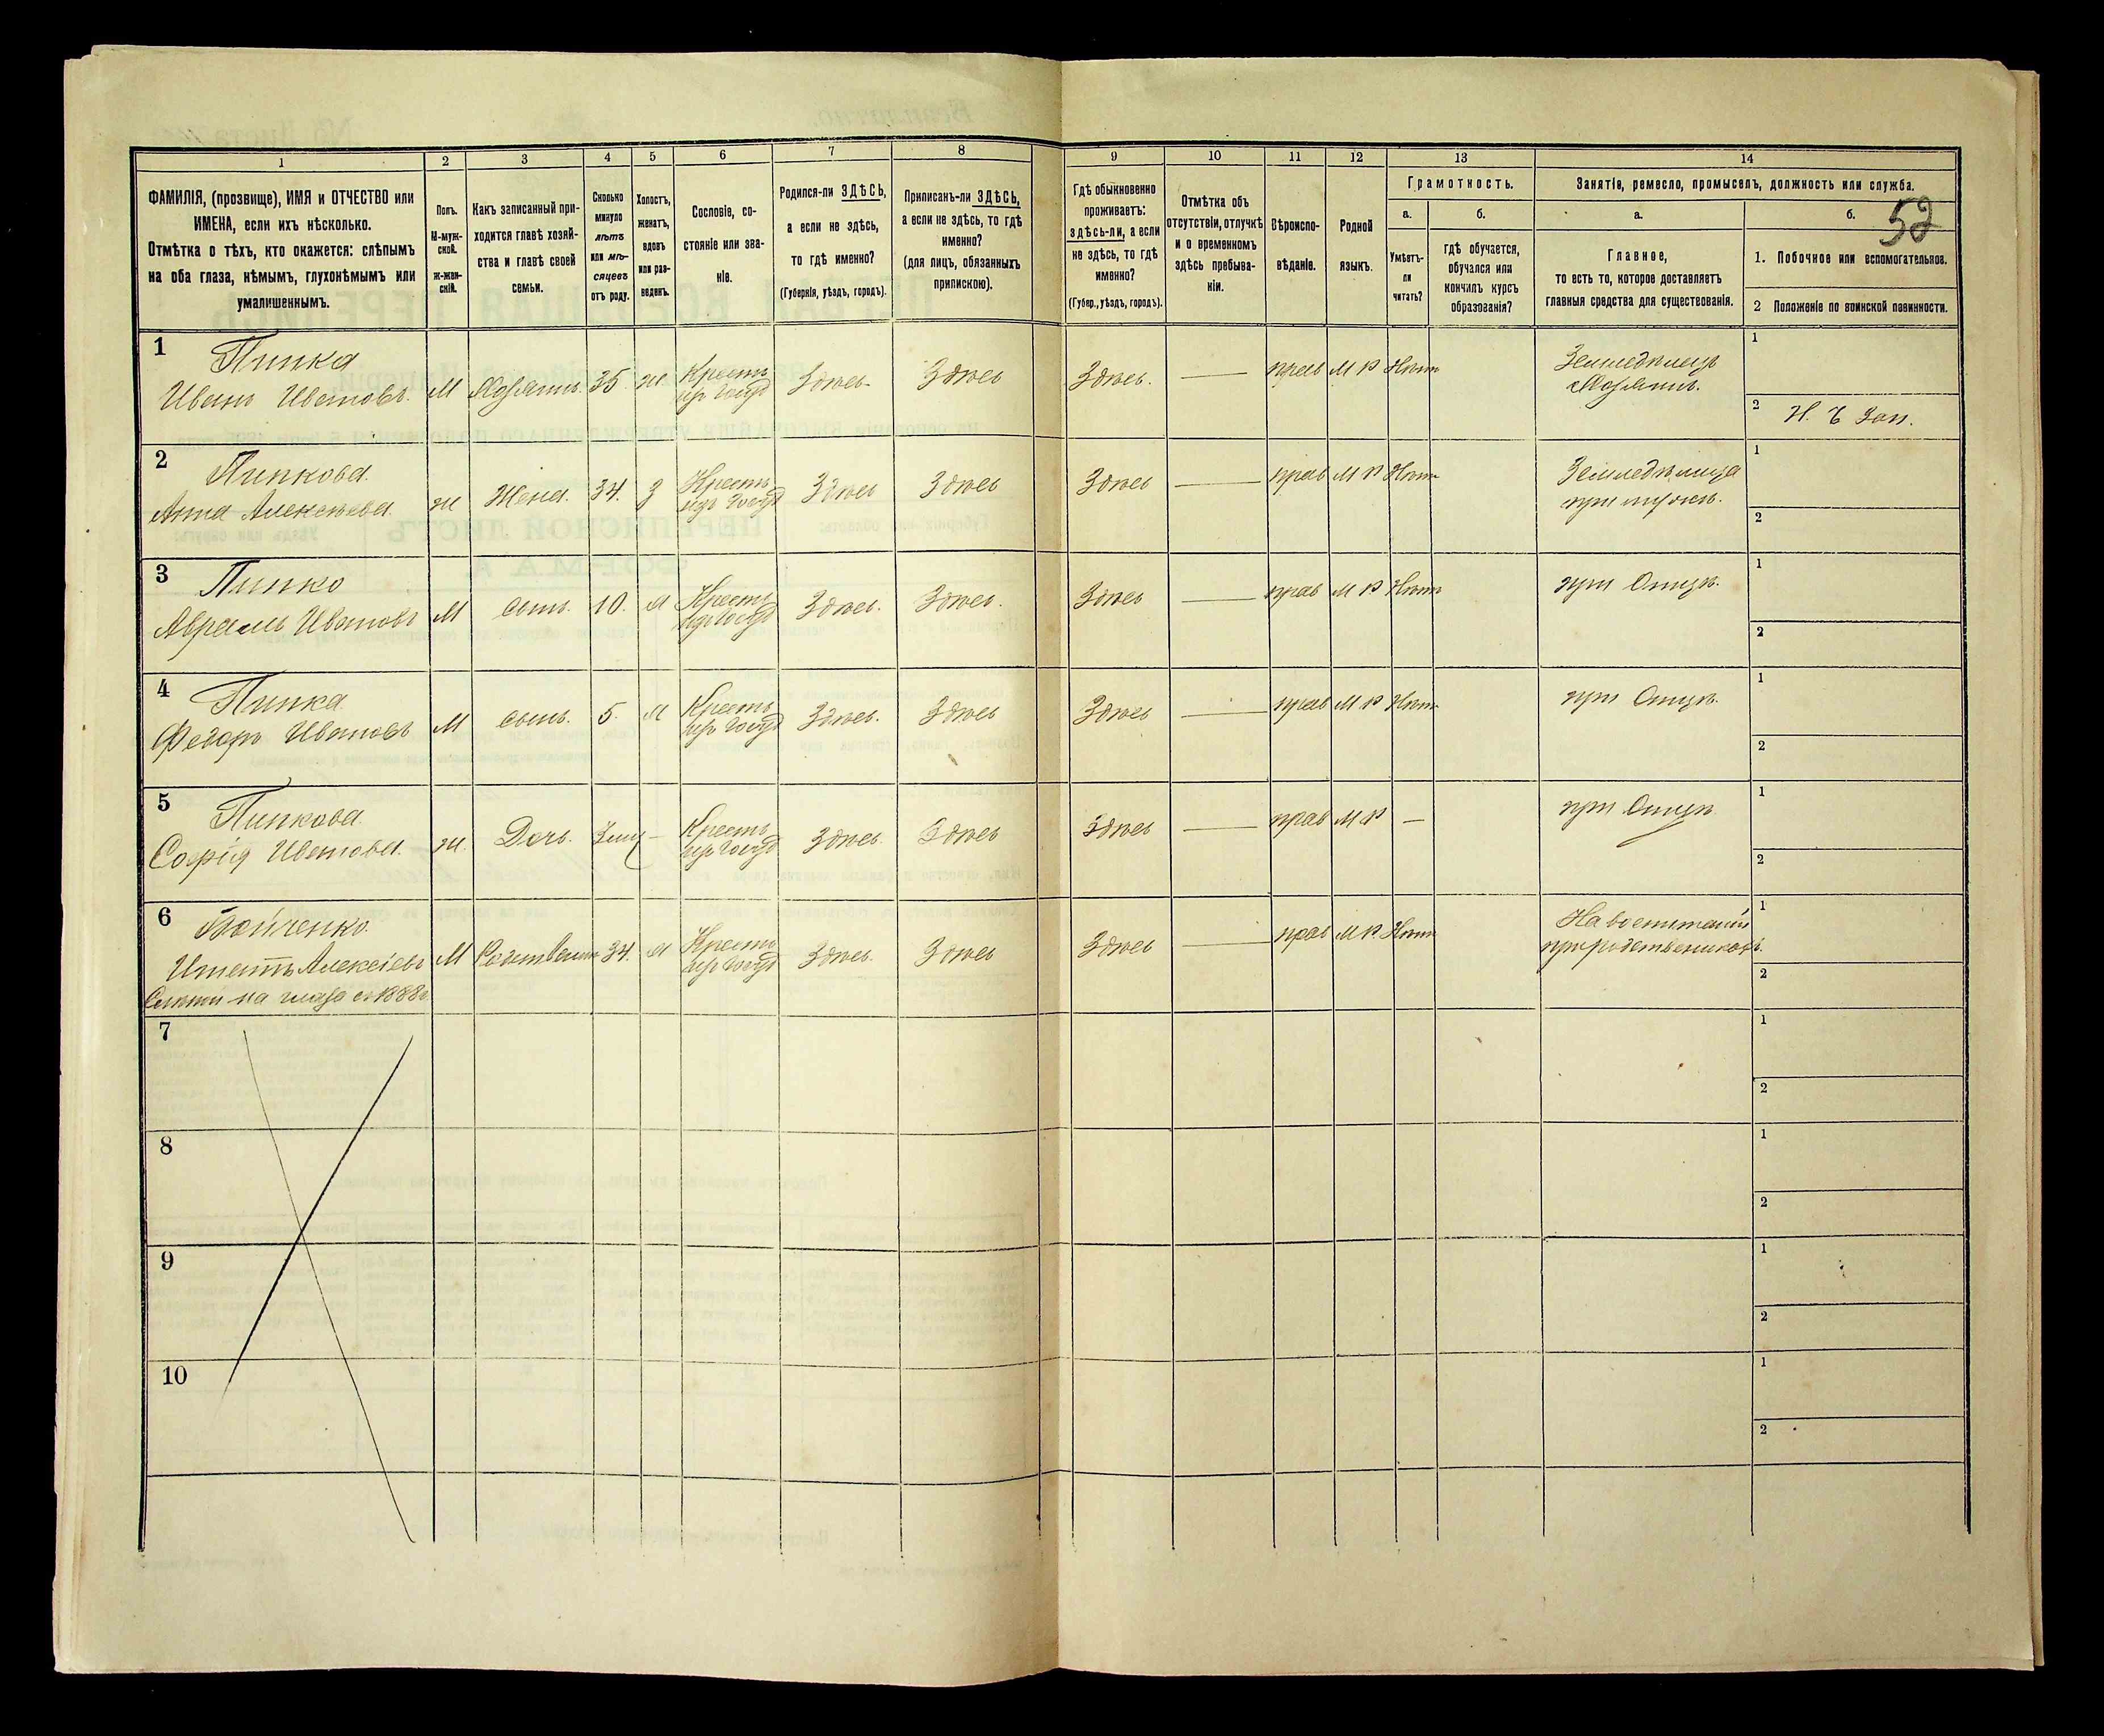 52
1 2 3 4 5 6 7 8 9 10 11 12 13 14
ФАМИЛІЯ, (прозвище), ИМЯ и ОТЧЕСТВО или
ИМЕНА, если ихъ нѣсколько.
Отмѣтка о тѣхъ, кто окажется: слѣпымъ
на оба глаза, нѣмымъ, глухонѣмымъ или
умалишеннымъ.
Полъ.
М-муж-
ской.
Ж-жен-
скій.
Какъ записанный при-
ходится главѣ хозяй-
ства и главѣ своей
семьи.
Сколько
минуло
лѣтъ
или мѣ-
сяцевъ
отъ роду.
Холостъ,
женатъ,
вдовъ
или раз-
веденъ.
Сословіе, со-
стояніе или зва-
ніе.
Родился-ли ЗДѢСЬ,
а если не здѣсь,
то гдѣ именно?
(Губернія, уѣздъ, городъ).
Приписанъ-ли ЗДѢСЬ,
а если не здѣсь, то гдѣ
именно?
(для лицъ, обязанныхъ
припискою).
Гдѣ обыкновенно
проживаетъ:
здѣсь-ли, а если
не здѣсь, то гдѣ
именно?
(Губер., уѣздъ, городъ).
Отмѣтка объ
отсутствіи, отлучкѣ
и о временномъ
здѣсь пребыва-
ніи.
Вѣроиспо-
вѣданіе.
Родной
языкъ.
Грамотность.
а.
Умѣетъ-
ли
читать?
б.
гдѣ обучается,
обучался или
кончилъ курсъ
образованія?
Занятіе, ремесло, промыселъ, должность или служба.
а.
Главное,
то есть то, которое доставляетъ
главныя средства для существованія.
б.
1. Побочное или вспомогательное.
2 Положеніе по воинской повинности.
1
Пипка
Иванъ Ивановъ. М Хозяинъ. 35. ж Крестъ изъ Госуд Здѣсь Здѣсь Здѣсь. — прав М Р Нѣтъ Земледѣлецъ
Хозяинъ.
1
2 Н. Ч Зап.
2
Пипкова.
Анна Алексѣева. ж Жена. 34. З Крестъ изъ Госуд Здѣсь Здѣсь Здѣсь — прав М Р Нѣтъ Земледѣлица
при мужѣ.
1
2
3
Пипко
Аврамъ Ивановъ М сынъ. 10. М Крестъ изъ Госуд Здѣсь. Здѣсь. Здѣсь — прав М Р Нѣтъ при Отцѣ.
1
2
4
Пипка
Федоръ Ивановъ М сынъ. 5. М Крестъ изъ Госуд Здѣсь. Здѣсь Здѣсь — прав М Р Нѣтъ при Отцѣ.
1
2
5
Пипкова.
Софія Иванова. ж. Дочь. — Крестъ изъ Госуд Здѣсь. Здѣсь Здѣсь — прав М Р — при Отцѣ
1
2
6
Бойченко.
Алексѣевъ М 34. М Крестъ изъ Госуд Здѣсь. Здѣсь Здѣсь — прав М Р Нѣтъ На воспитаніи
при родственикахъ.
на глаза съ 1888
1
2
7
1
2
8
1
2
9
1
2
10
1
2